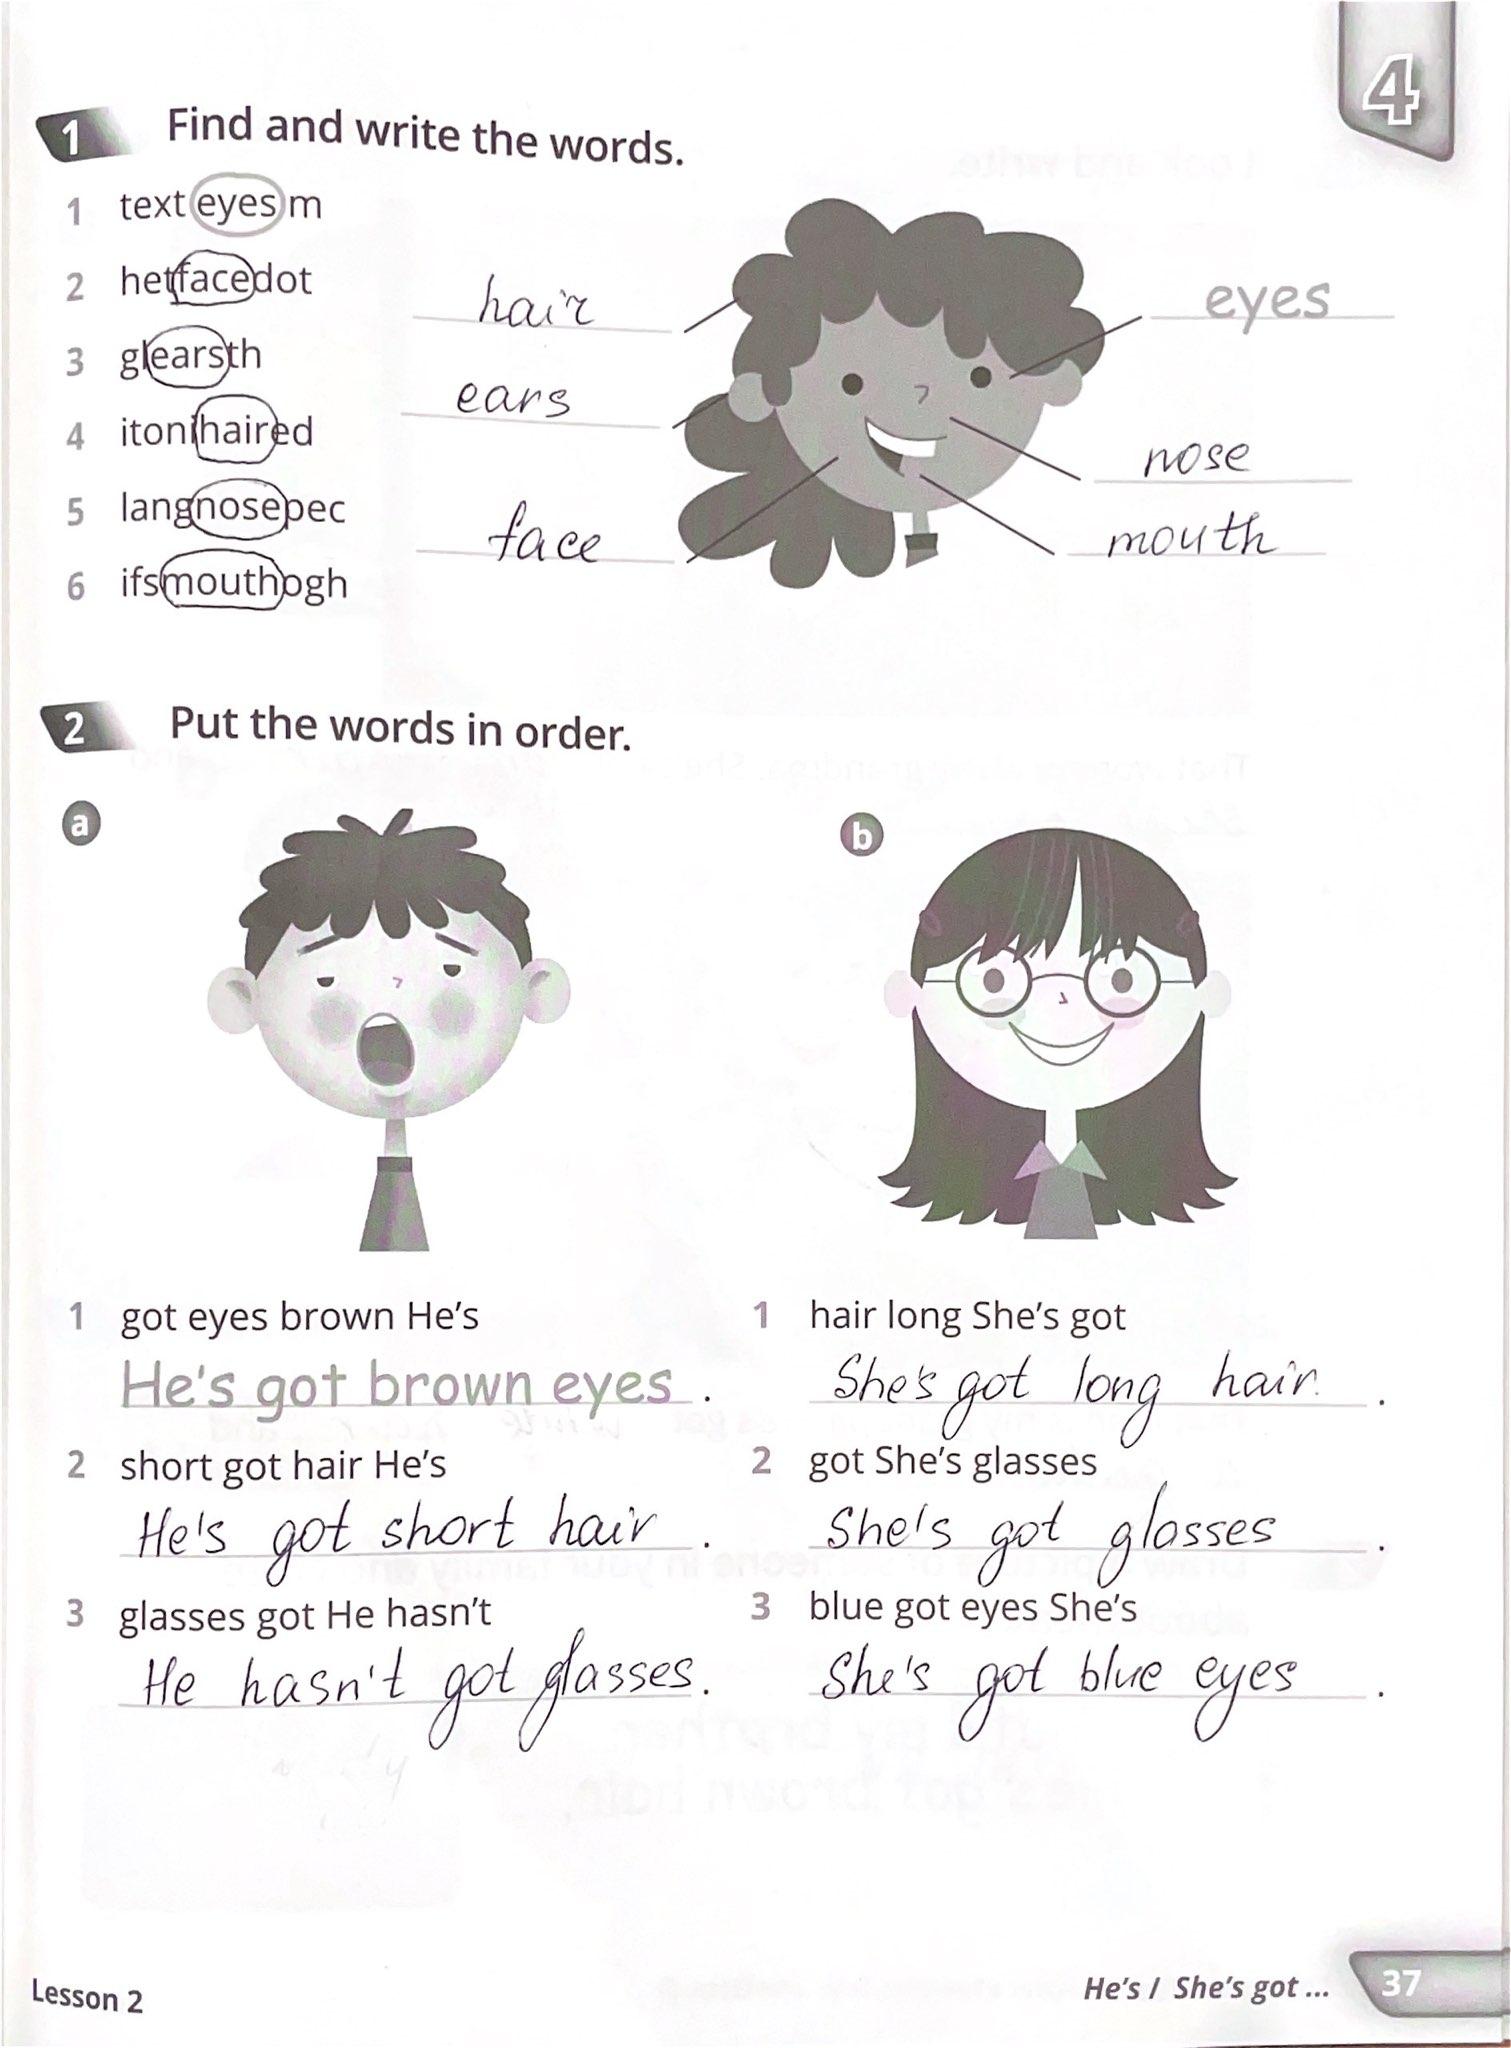 4
1 Find and write the words.
1 texteyesm
2 hetfacedot
3 glearsth
4 itonihaired
5 langnosepec
6 ifsmouthogh
hair
ears
face
eyes
nose
mouth
2 Put the words in order.
a
b
1 got eyes brown He's
He's got brown eyes .
2 short got hair He's
He's got short hair .
3 glasses got He hasn't
He hasn't got glasses.
1 hair long She's got
She's got long hair. .
2 got She's glasses
She's got glasses .
3 blue got eyes She's
She's got blue eyes .
Lesson 2
He's / She's got ...
37